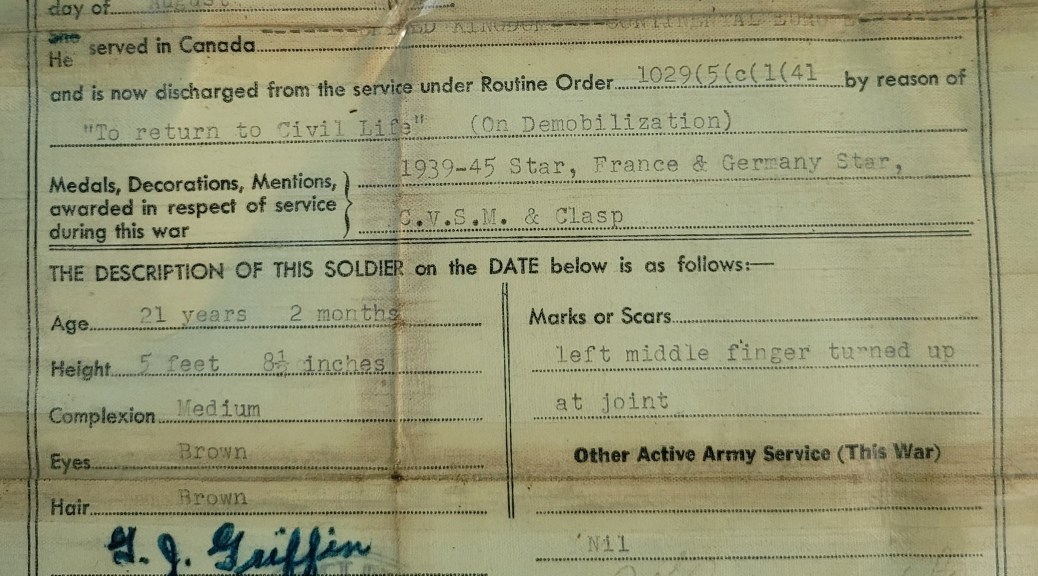 day of August
UNITED KINGDOM CONTINENTAL EUROPE
She
He served in Canada
and is now discharged from the service under Routine Order 1029(5(c(1(41 by reason of
"To return to Civil Life" (On Demobilization)
Medals, Decorations, Mentions, awarded in respect of service during this war } 1939-45 Star, France & Germany Star,
C.V.S.M. & Clasp
THE DESCRIPTION OF THIS SOLDIER on the DATE below is as follows:—
Age 21 years 2 months
Height 5 feet 8½ inches
Complexion Medium
Eyes Brown
Hair Brown
G. J. Griffin
Marks or Scars
left middle finger turned up
at joint
Other Active Army Service (This War)
Nil